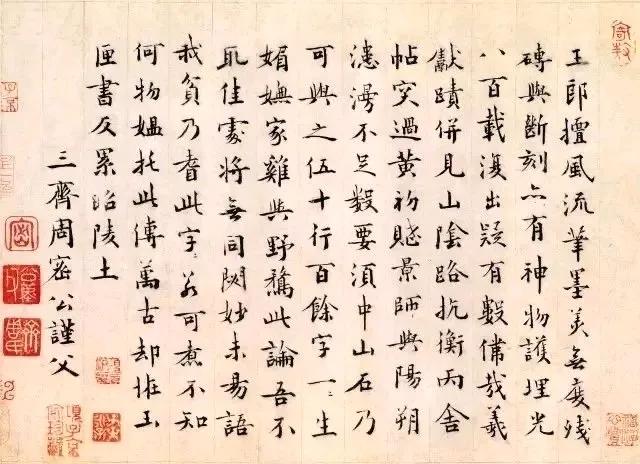 王郎擅風流筆墨美無度殘
磚與斷刻亦有神物護埋光
八百載復出疑有數備哉羲
獻蹟併見山陰路抗衡丙舍
帖突過黃初賦景師與陽朔
漶漫不足數要須中山石乃
可與之伍十行百餘字一〻生
媚嫵家雞與野鶩此論吾不
取佳處將無同閟妙未易語
我貧乃耆此字可煮不知
何物媼托此傳萬古却恠玉
匣書反累昭陵土
三齊周密公謹父